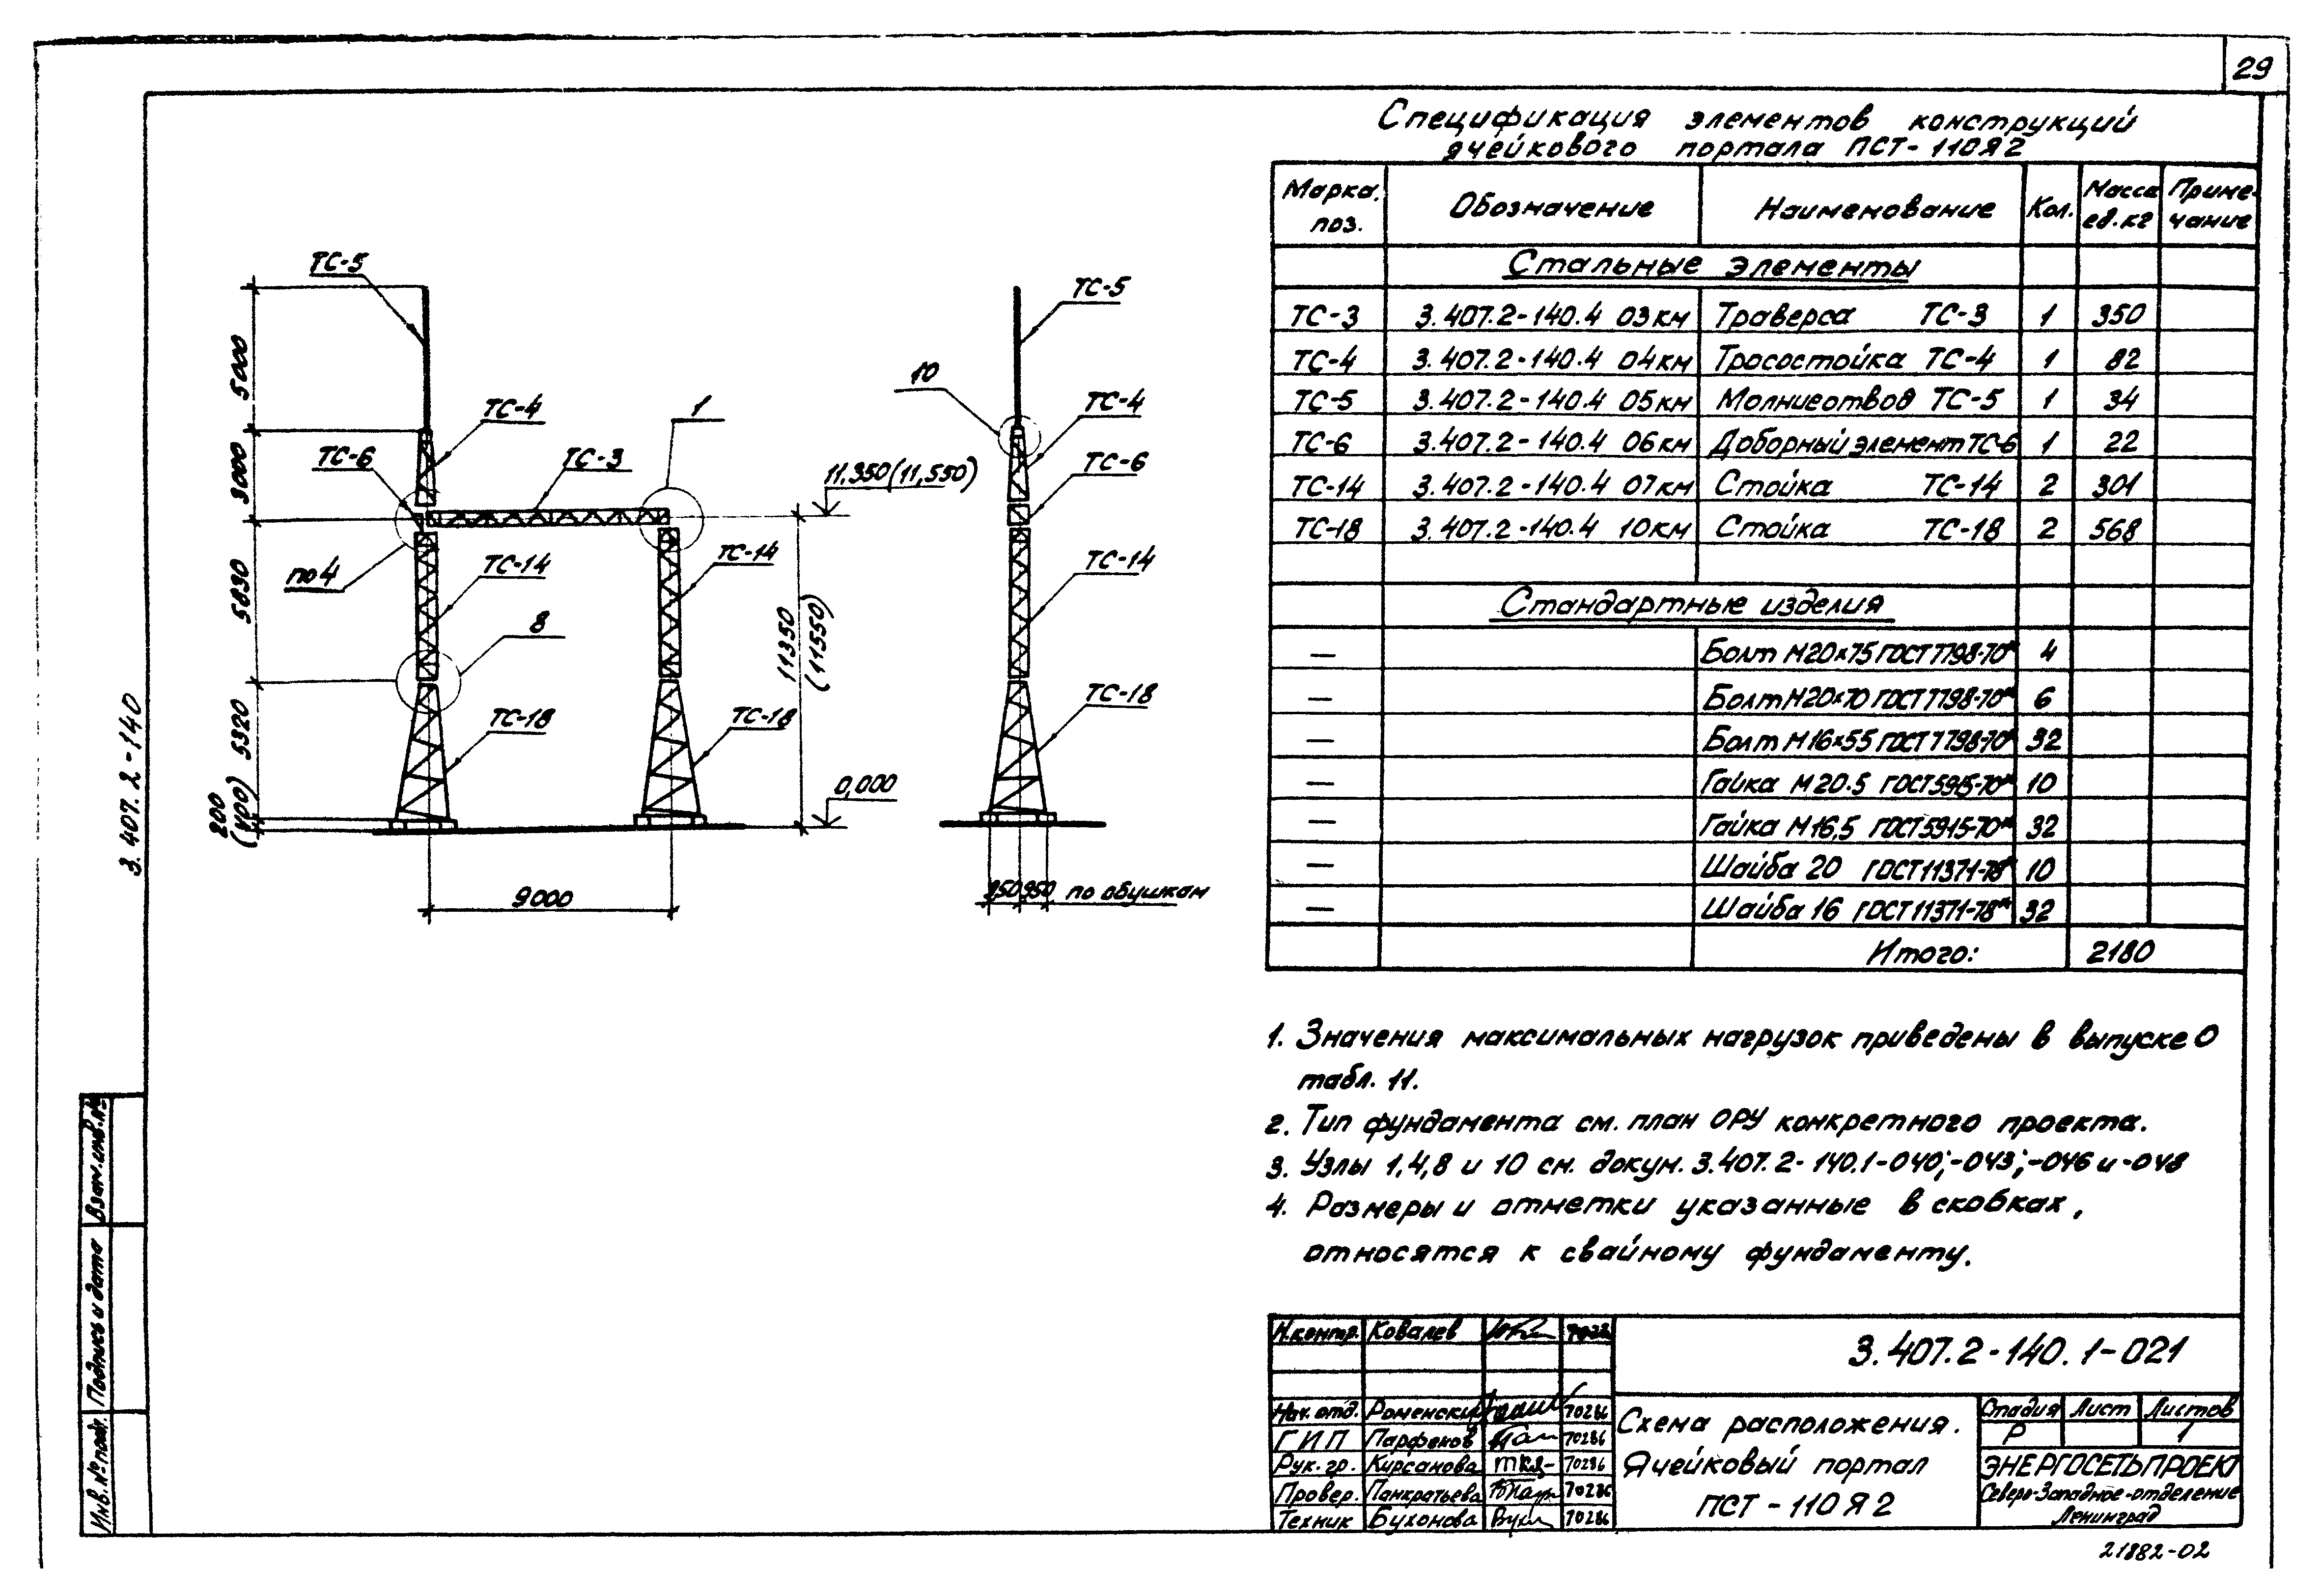 29
Спецификация элементов конструкций
ячейкового портала ПСТ-110Я2
Марка, поз. Обозначение Наименование Кол. Масса ед.кг Приме-чание
Стальные элементы
ТС-3 3.407.2-140.4 03км Траверса ТС-3 1 350
ТС-4 3.407.2-140.4 04км Тросостойка ТС-4 1 82
ТС-5 3.407.2-140.4 05км Молниеотвод ТС-5 1 34
ТС-6 3.407.2-140.4 06км Доборный элемент ТС-6 1 22
ТС-14 3.407.2-140.4 07км Стойка ТС-14 2 301
ТС-18 3.407.2-140.4 10км Стойка ТС-18 2 568
Стандартные изделия
— Болт М20х75 ГОСТ 7798-70* 4
— Болт М20х70 ГОСТ 7798-70* 6
— Болт М16х55 ГОСТ 7798-70* 32
— Гайка М20.5 ГОСТ 5915-70* 10
— Гайка М16,5 ГОСТ 5915-70* 32
— Шайба 20 ГОСТ 11371-78* 10
— Шайба 16 ГОСТ 11371-78* 32
Итого: 2180
ТС-5
ТС-4
ТС-6
ТС-3
1
по 4
ТС-14
ТС-14
8
ТС-18
ТС-18
5000
3000
5830
5320
200
(400)
9000
11,350(11,550)
11350
(11550)
0,000
ТС-5
10
ТС-4
ТС-6
ТС-14
ТС-18
950 950 по обушкам
3.407.2-140
1. Значения максимальных нагрузок приведены в выпуске 0
табл. 11.
2. Тип фундамента см. план ОРУ конкретного проекта.
3. Узлы 1,4,8 и 10 см. докум. 3.407.2-140.1-040;-043;-046 и -048
4. Размеры и отметки указанные в скобках,
относятся к свайному фундаменту.
Взам.инв.№
Подпись и дата
Инв.№ подл.
Н.контр. Ковалев
Нач. отд. Роменский 70286
ГИП Парфенов 70286
Рук. гр. Кирсанова 70286
Провер. Панкратьева 70286
Техник Бухонова 70286
3.407.2-140.1-021
Схема расположения.
Ячейковый портал
ПСТ-110Я2
Стадия Лист Листов
Р 1
ЭНЕРГОСЕТЬПРОЕКТ
Северо-Западное отделение
Ленинград
21882-02